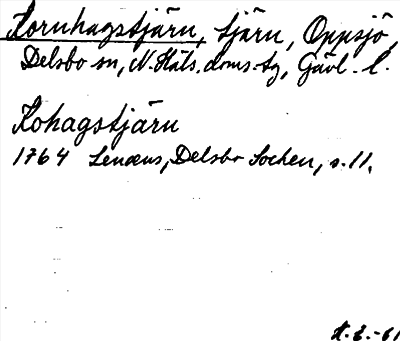 Kornhagstjärn, tjärn, Oppsjö,
Delsbo sn, N. Häls. doms. tg, Gävl. l.
Kohagstjärn
1764 Lenæus, Delsbo Sochen, s. 11.
H. E. -61